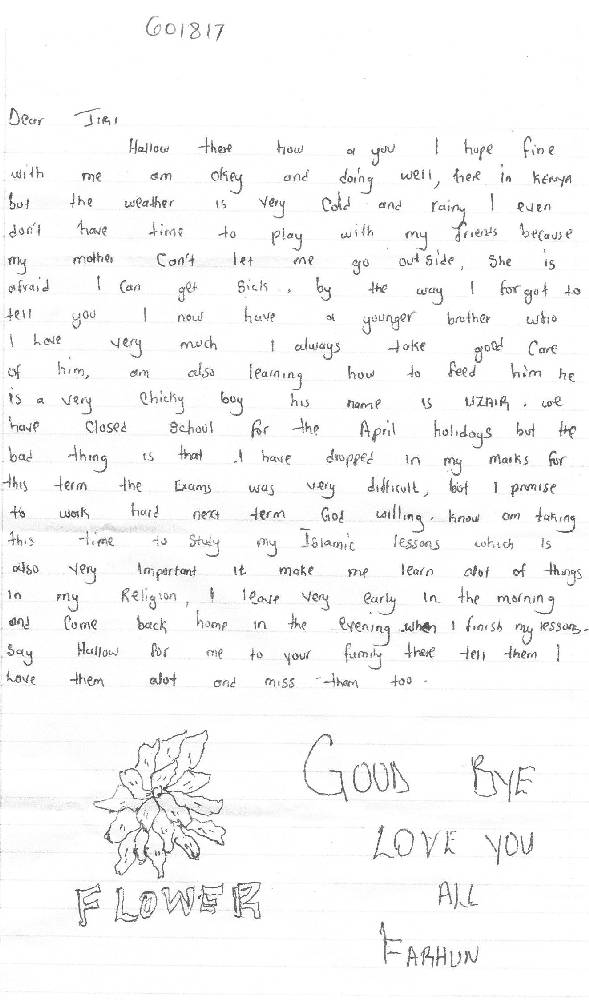 601817
Dear JIRI
Hallow there how a you I hope fine
with me am okey and doing well, here in KENYA
but the weather is very Cold and rainy I even
don't have time to play with my friends because
my mother Can't let me go outside, She is
afraid I can get Sick. by the way I forgot to
tell you I now have a younger brother who
I love very much I always take good Care
of him, am also learning how to feed him he
is a very Chicky boy his name is UZAIR. we
have Closed School for the April holidays but the
bad thing is that I have dropped in my marks for
this term the Exams was very difficult, but I promise
to work hard next term God willing. know am taking
this time to Study my Islamic lessons which is
also very Important it make me learn alot of things
in my Religion, I leave very early in the morning
and Come back home in the evening when I finish my lessons.
Say Hallow for me to your family there tell them I
Love them alot and miss them too.
GOOD BYE
LOVE YOU
ALL
FARHUN
FLOWER